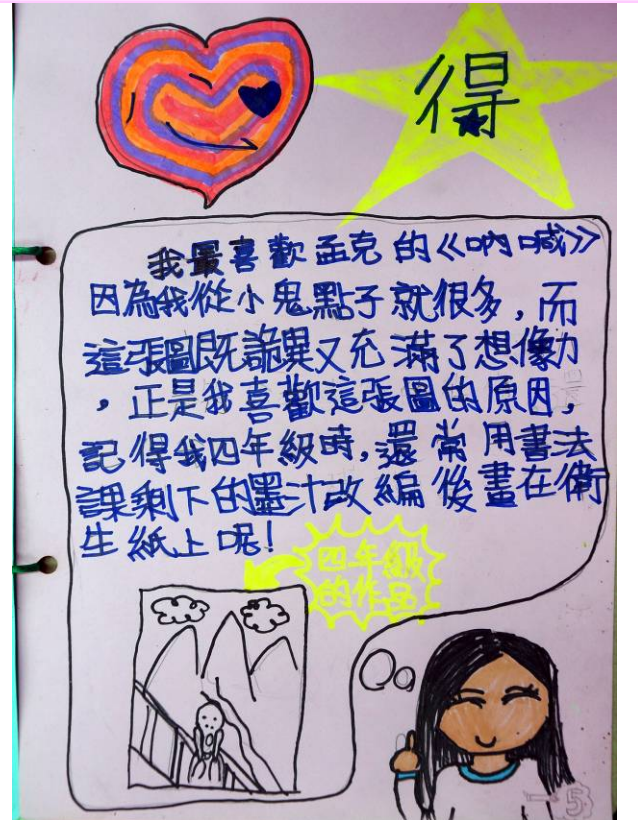 心得
我最喜歡孟克的《吶喊》
因為我從小鬼點子就很多，而
這張圖既詭異又充滿了想像力
，正是我喜歡這張圖的原因，
記得我四年級時，還常用書法
課剩下的墨汁改編後畫在衛
生紙上呢！
四年級
的作品
5